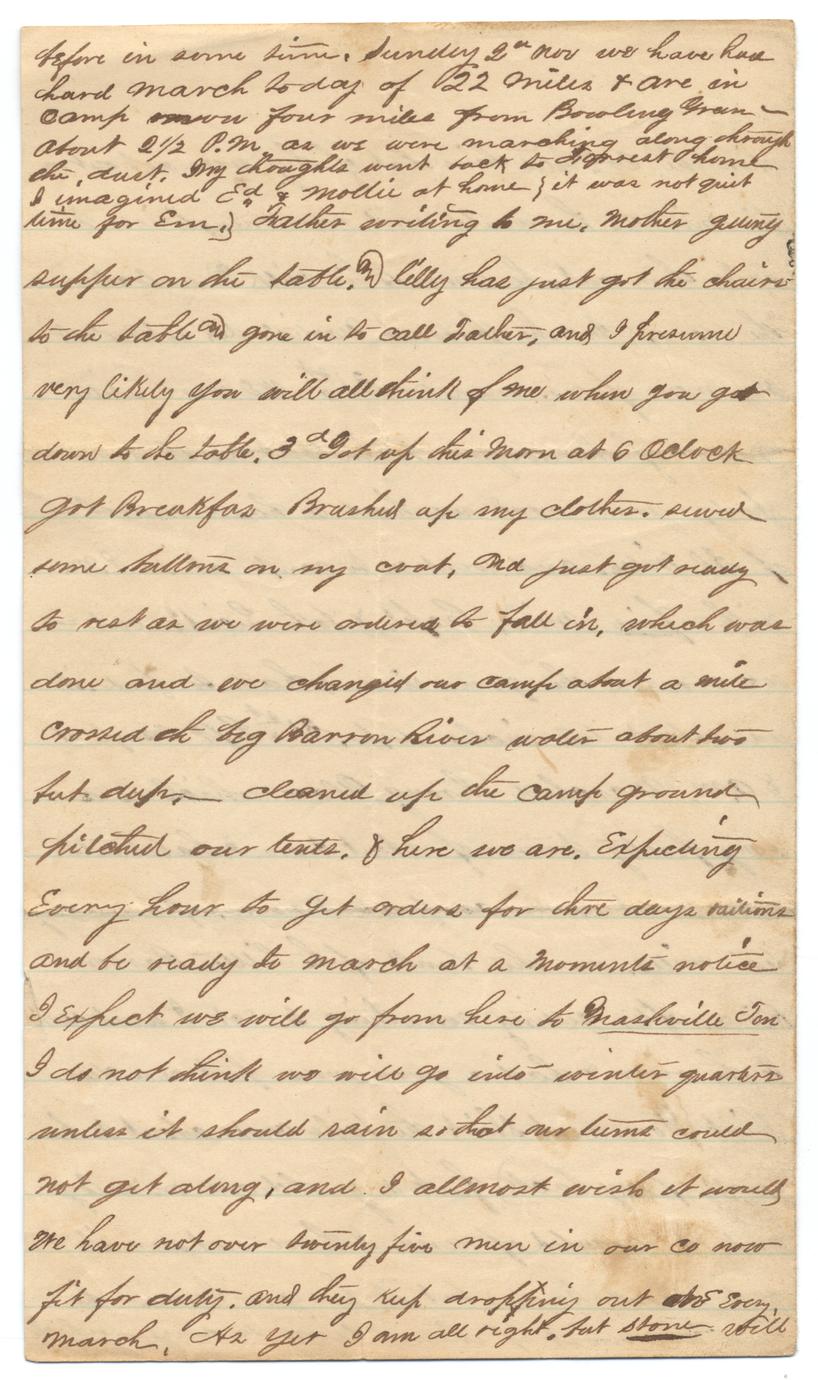 before in some time. Sunday 2nd Nov we have had
hard march today of 22 miles & are in
camp now four miles from Bowling Green
About 2 1/2 P.M. as we were marching along through
the dust. My thoughts went back to Forrest home
I imagined Ed & Mollie at home {it was not quit
time for Em.} Father writing to me, Mother geting
supper on the table. Lilly has just got the chairs
to the table and gone in to call Father, and I presume
very likely you will all think of me when you get
down to the table. 3d Got up this Morn at 6 Oclock
got Breakfas Brushed up my clothes. sewed
some buttons on my coat, and just got ready
to rest as we were ordered to fall in, which was
done and we changed our camp about a mile
crossed th big Barron River water about two
feet deep, cleaned up the camp ground
pitched our tents. & here we are. Expecting
Every hour to get orders for thre days rations
and be ready to march at a moments notice
I Expect we will go from here to Nashville Ten
I do not think we will go into winter quarters
unless it should rain so that our teems could
not get along, and I allmost wish it would
We have not over twenty five men in our co now
fit for duty. and they keep dropping out Every
march. As yet I am all right, but stone will